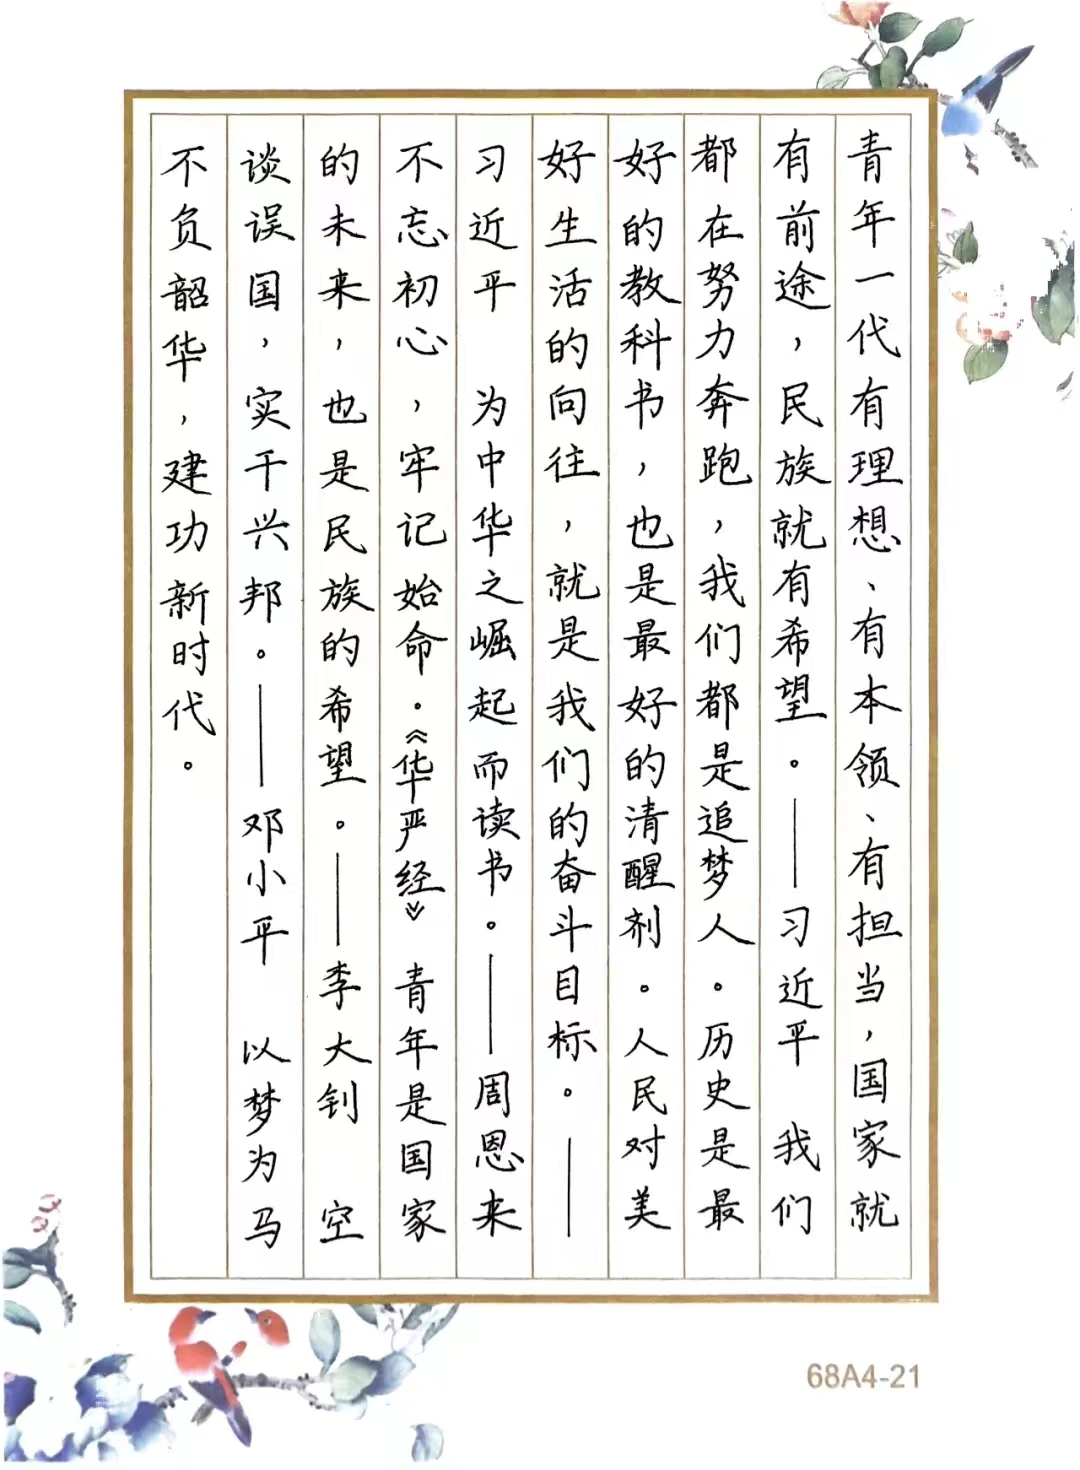 青年一代有理想、有本领、有担当，国家就
有前途，民族就有希望。——习近平 我们
都在努力奔跑，我们都是追梦人。历史是最
好的教科书，也是最好的清醒剂。人民对美
好生活的向往，就是我们的奋斗目标。——
习近平 为中华之崛起而读书。——周恩来
不忘初心，牢记始命。《华严经》 青年是国家
的未来，也是民族的希望。——李大钊 空
谈误国，实干兴邦。——邓小平 以梦为马
不负韶华，建功新时代。
68A4-21